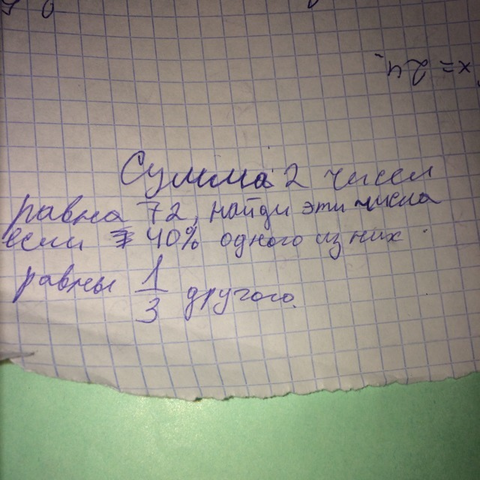 x = 24
Сумма 2 чисел
равна 72, найди эти числа
если 40% одного из них
равны 1/3 другого.